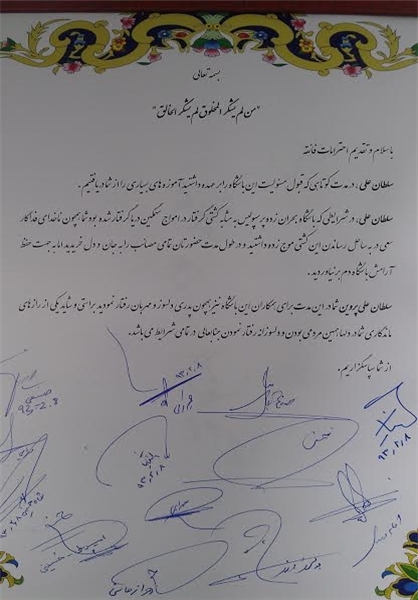 بسمه تعالی
"من لم یشکر المخلوق لم یشکر الخالق"
با سلام و تقدیم احترامات فائقه
سلطان علی، در مدت کوتاهی که قبول مسئولیت این باشگاه را بر عهده داشتید آموزه های بسیاری را از شما دریافتیم.
سلطان علی، در شرایطی که باشگاه بحران زده و پرسپولیس به مثابه کشتی گرفتار در امواج سهمگین دریا گرفتار شده بود شما همچون ناخدای فداکار
سعی در به ساحل رساندن این کشتی موج زده داشتید و در طول مدت حضورتان تمامی مصائب را به جان و دل خریدید اما به جهت حفظ
آرامش باشگاه دم بر نیاوردید.
سلطان علی پروین شما در این مدت برای همکاران این باشگاه نیز همچون پدری دلسوز و مهربان رفتار نمودید براستی و شاید یکی از رازهای
ماندگاری شما در دلها همین مردمی بودن و دلسوزانه رفتار نمودن جنابعالی در تمامی شرایط می باشد.
از شما سپاسگزاریم.
۹۳،۲،۸
93-2-8
۹۳،۲،۸
۹۳،۲،۸